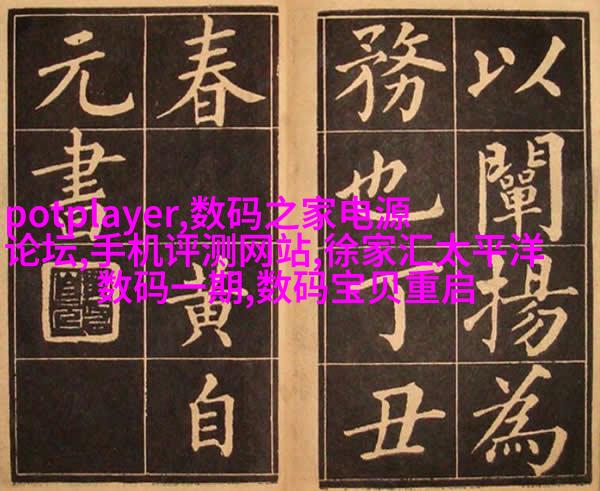 以闡揚為
務也丁丑
春 黄自
元書
potplayer,数码之家电源
论坛,手机评测网站,徐家汇太平洋
数码一期,数码宝贝重启